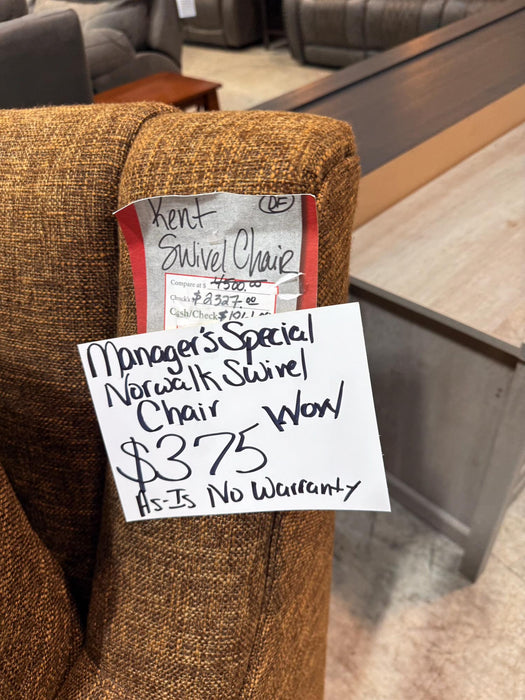 Kent (DF)
Swivel Chair
Compare at $ 4500.00
Chuck's $2327.00
Cash/Check $
Manager's Special
Norwalk Swivel
Chair WOW
$375
As-Is No Warranty